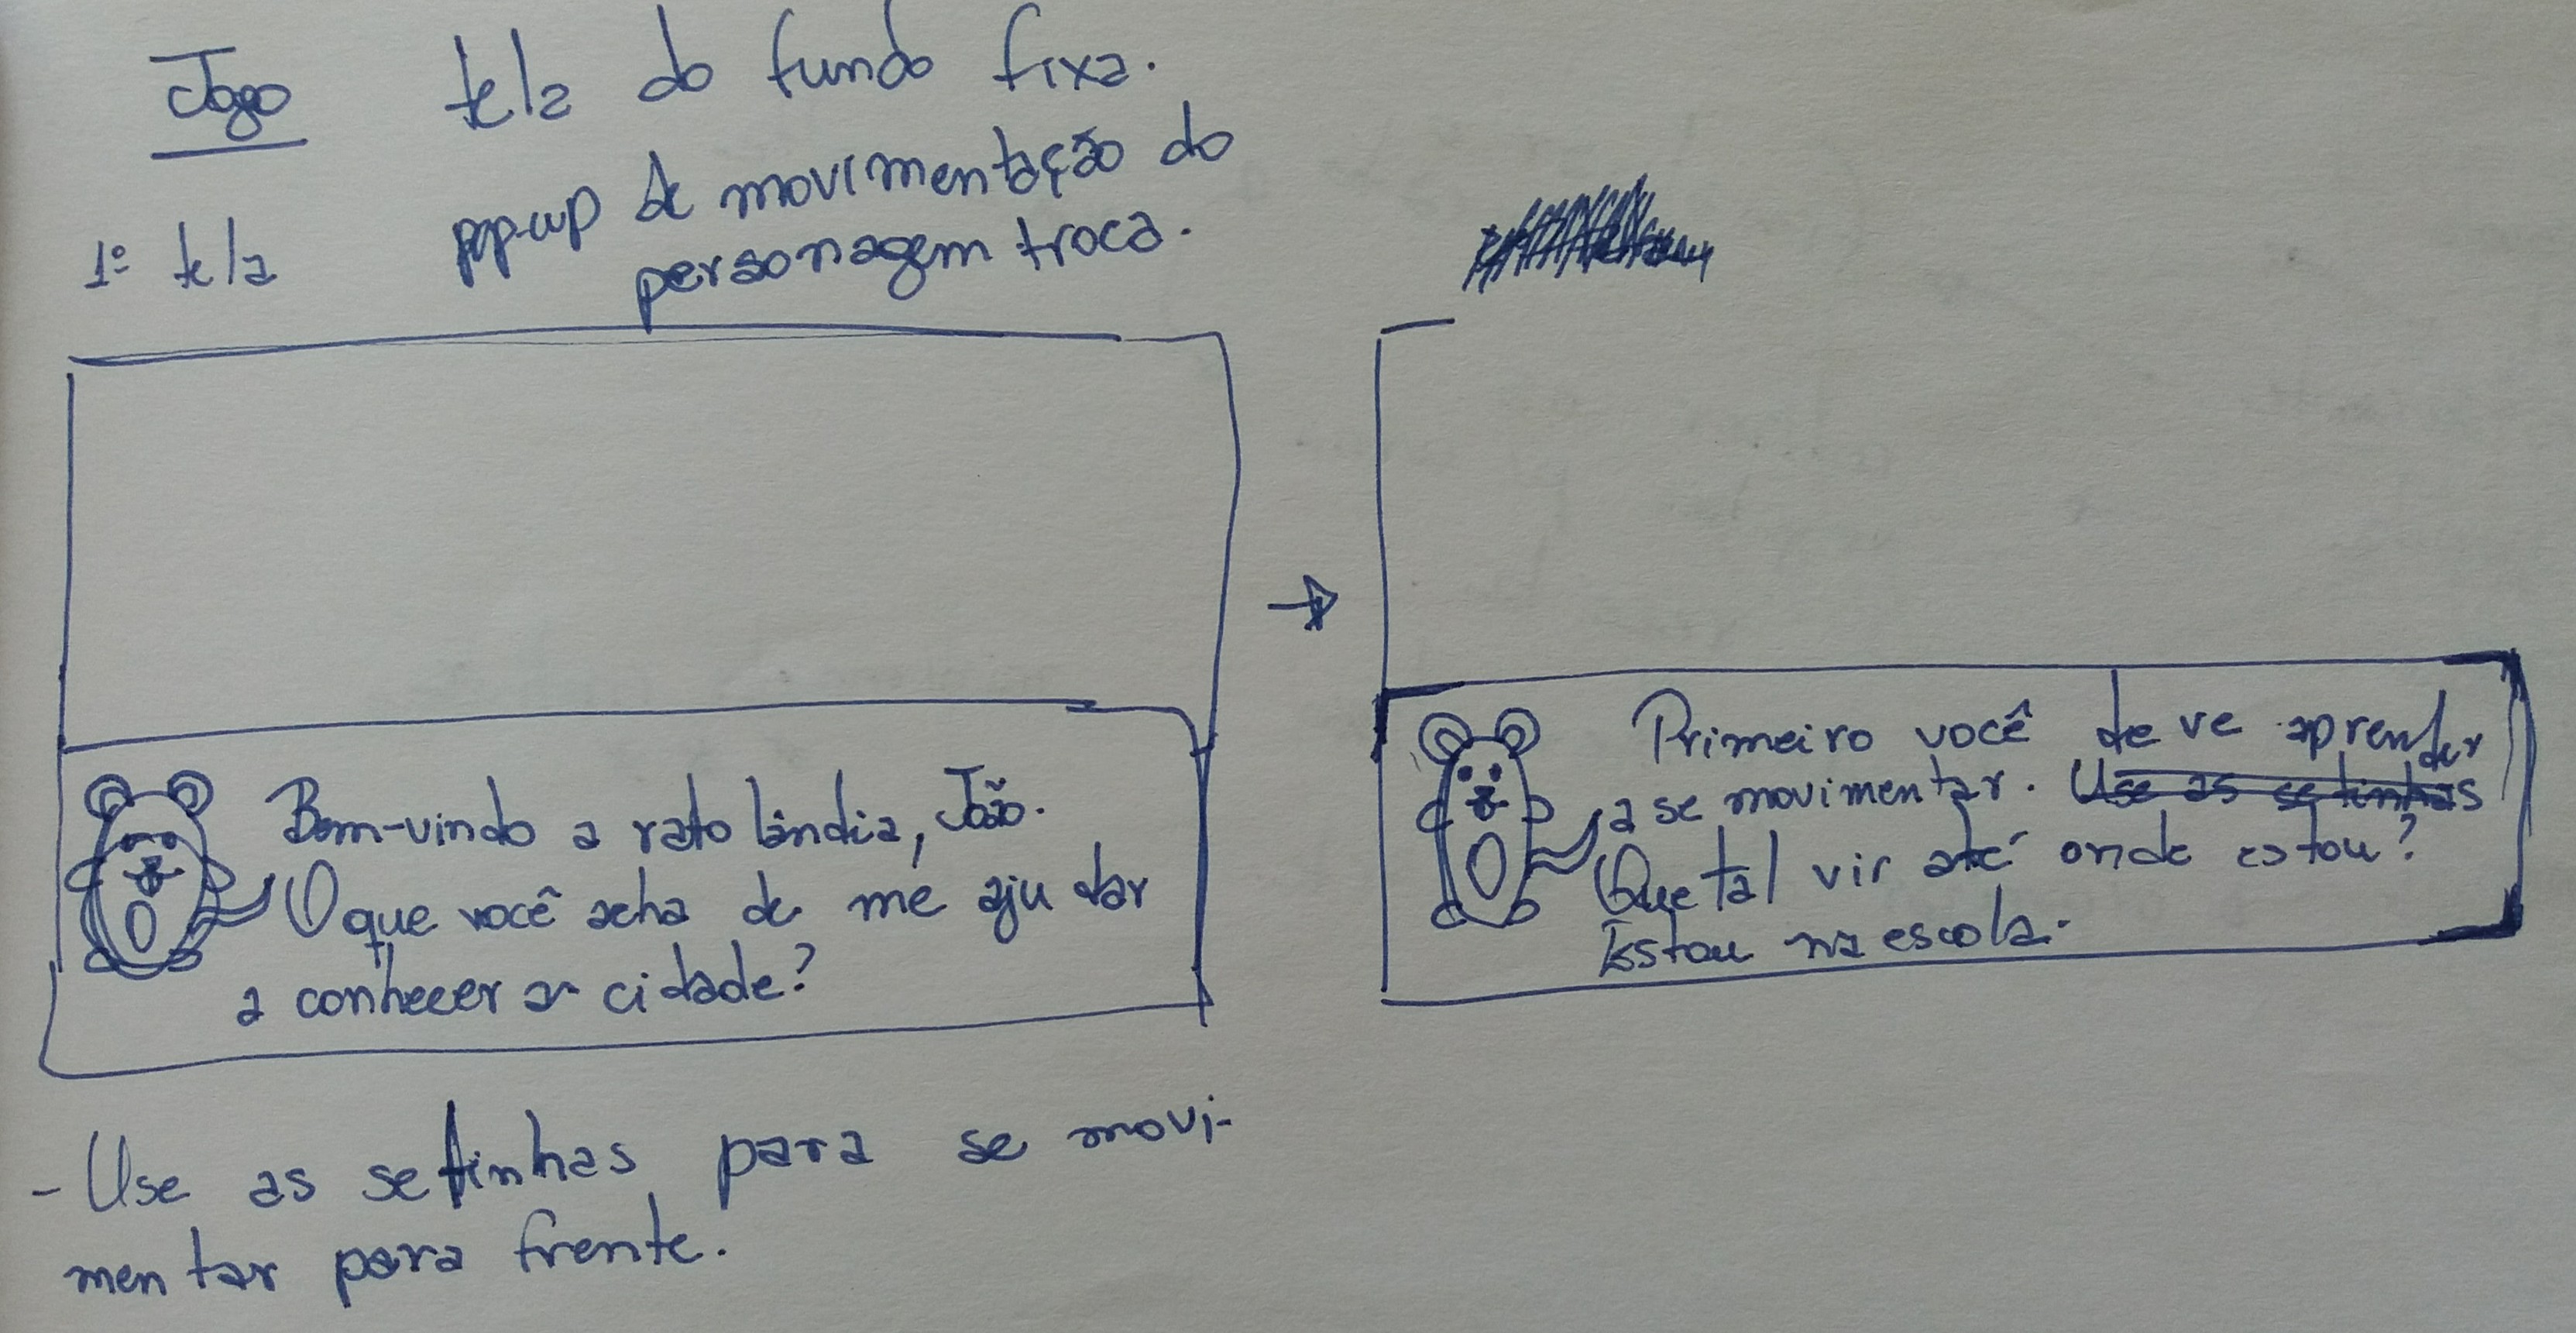 Jogo
tela do fundo fixa.
1º tela
pop-up de movimentação do
personagem troca.
Bem-vindo a ratolândia, João.
O que você acha de me ajudar
a conhecer a cidade?
Primeiro você deve aprender
a se movimentar. Use as setinhas
Que tal vir até onde estou?
Estou na escola.
- Use as setinhas para se movi-
mentar para frente.